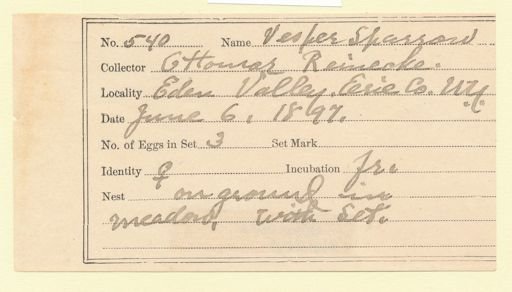 No. 540 Name Vesper Sparrow
Collector Ottomar Reinecke.
Locality Eden Valley. Erie Co. N.Y.
Date June 6, 1897.
No. of Eggs in Set 3 Set Mark
Identity ♀ Incubation fr.
Nest on ground in
meadow, with set.